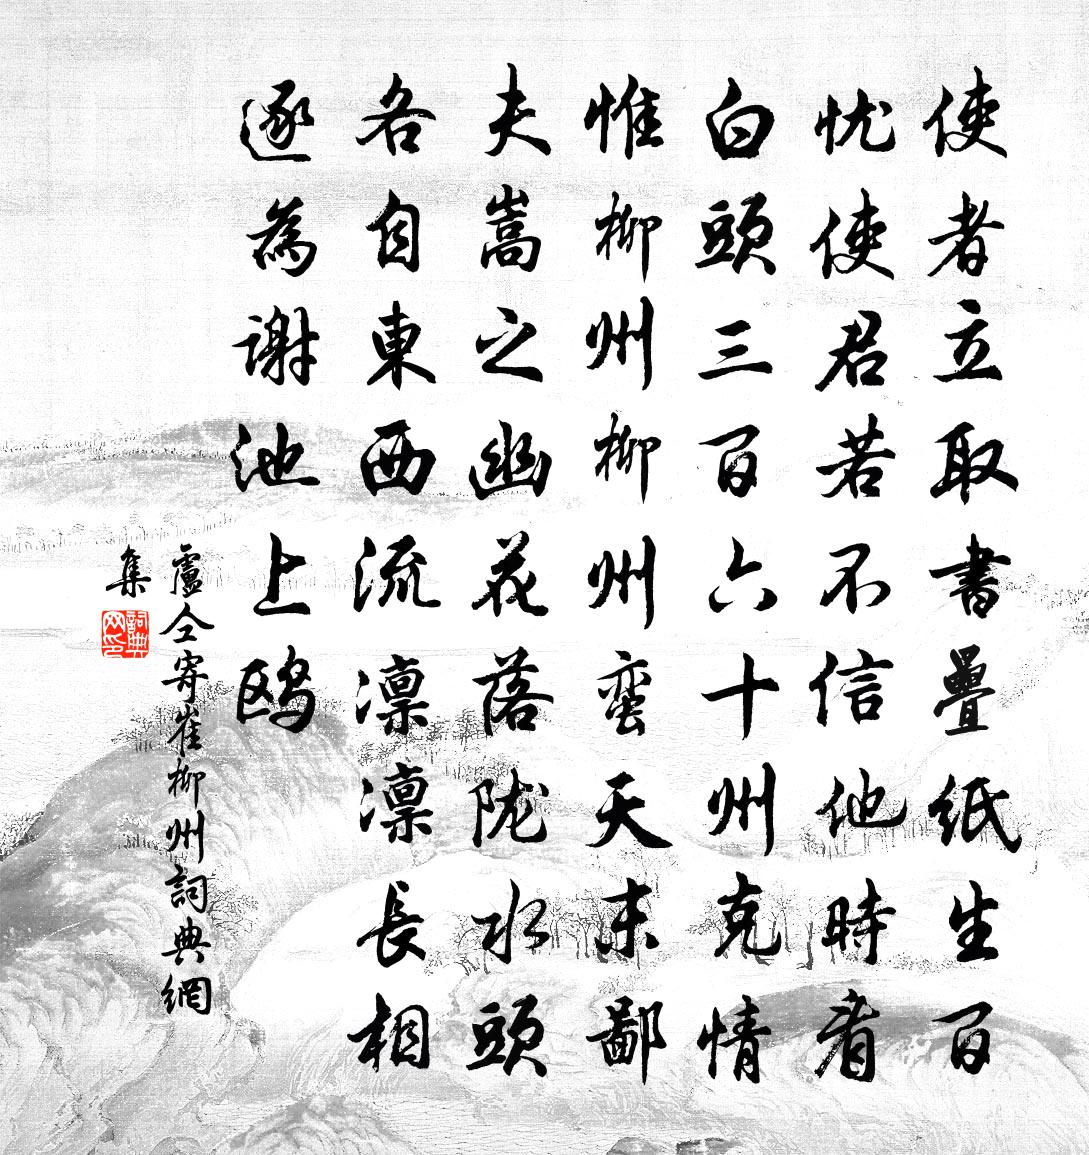 使者立取書疊紙生百
忧使君若不信他時看
白頭三百六十州克情
惟柳州柳州蛮天末鄙
夫嵩之幽花落陇水頭
各自東西流凛凛長相
逐為谢池上鸥
盧仝寄崔柳州詞典網
集
詞典
网印